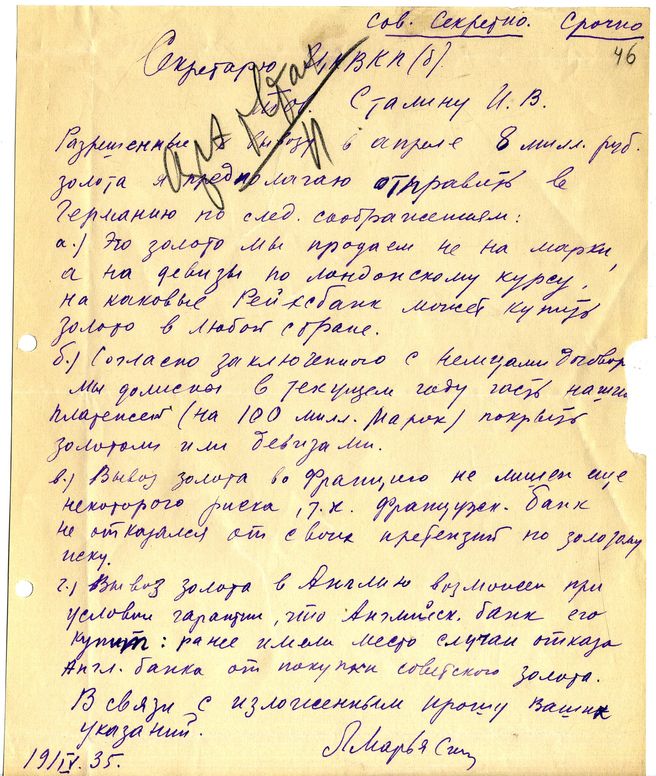 Сов. Секретно. Срочно
46
Секретарю ЦК ВКП(б)
тов. Сталину И. В.
Разрешенные к вывозу в апреле 8 милл. руб.
золота я предполагаю отправить в
Германию по след. соображениям:
а.) Это золото мы продаем не на марки,
а на девизы по лондонскому курсу,
на каковые Рейхсбанк может купить
золото в любой стране.
б.) Согласно заключенного с немцами договора
мы должны в текущем году часть наших
платежей (на 100 милл. марок) покрыть
золотом или девизами.
в.) Вывоз золота во Францию не лишен еще
некоторого риска, т.к. Французск. банк
не отказался от своих претензий по золотому
иску.
г.) Вывоз золота в Англию возможен при
условии гарантии, что Английск. банк его
купит: ранее имели место случаи отказа
Англ. банка от покупки советского золота.
В связи с изложенным прошу Ваших
указаний.
19/IV.35.